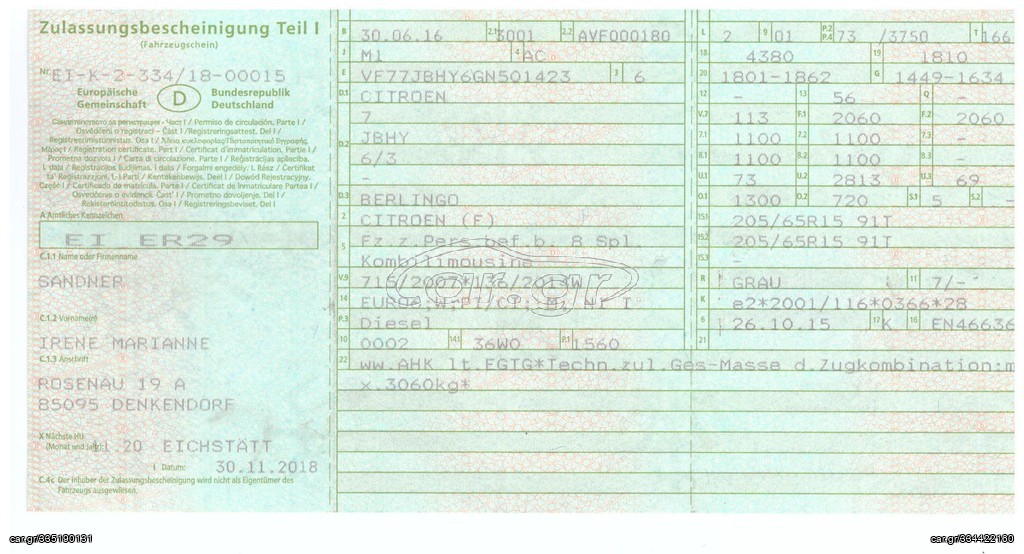 Zulassungsbescheinigung Teil I
(Fahrzeugschein)
Nr. EI-K-2-334/18-00015
Europäische Gemeinschaft D Bundesrepublik Deutschland
Свидетелство за регистрация - Част I / Permiso de circulación. Parte I /
Osvědčení o registraci – Část I / Registreringsattest. Del I /
Registreerimistunnistus. Osa I / Άδεια κυκλοφορίας/Πιστοποιητικό Εγγραφής.
Μέρος I / Registration certificate. Part I / Certificat d'immatriculation. Partie I /
Prometna dozvola I / Carta di circolazione. Parte I / Reģistrācijas apliecība.
I. daļa / Registracijos liudijimas. I dalis / Forgalmi engedély. I. Rész / Ċertifikat
ta' Reġistrazzjoni. L-I Parti / Kentekenbewijs. Deel I / Dowód Rejestracyjny.
Część I / Certificado de matrícula. Parte I / Certificat de înmatriculare Partea I /
Osvedčenie o evidencii. Časť I / Prometno dovoljenje. Del I /
Rekisteröintitodistus. Osa I / Registreringsbeviset. Del I
A Amtliches Kennzeichen
EI ER29
C.1.1 Name oder Firmenname
SANDNER
C.1.2 Vorname(n)
IRENE MARIANNE
C.1.3 Anschrift
ROSENAU 19 A
85095 DENKENDORF
X Nächste HU
(Monat und Jahr) 11.20 EICHSTÄTT
I Datum: 30.11.2018
C.4c Der Inhaber der Zulassungsbescheinigung wird nicht als Eigentümer des
Fahrzeugs ausgewiesen.
B 30.06.16 2.1 3001 2.2 AVF000180
J M1 4 AC
E VF77JBHY6GN501423 3 6
D.1 CITROEN
7
D.2 JBHY
6/3
-
D.3 BERLINGO
2 CITROEN (F)
5 Fz.z.Pers.bef.b. 8 Spl.
Kombilimousine
V.9 715/2007*136/2014W
14 EURO6;W;PI/CI; M, N1 I
P.3 Diesel
10 0002 14.1 36W0 P.1 1560
22 ww.AHK lt.EGTG*Techn.zul.Ges-Masse d.Zugkombination:m
x.3060kg*
L 2 9 01 P.2 P.4 73 /3750 T 166
18 4380 19 1810
20 1801-1862 G 1449-1634
12 - 13 56 Q -
V.7 113 F.1 2060 F.2 2060
7.1 1100 7.2 1100 7.3 -
8.1 1100 8.2 1100 8.3 -
U.1 73 U.2 2813 U.3 69
O.1 1300 O.2 720 S.1 5 S.2 -
15.1 205/65R15 91T
15.2 205/65R15 91T
15.3 -
R GRAU 11 7/-
K e2*2001/116*0366*28
6 26.10.15 17 K 16 EN46636
21
car.gr
car.gr/335190131
car.gr/334422160